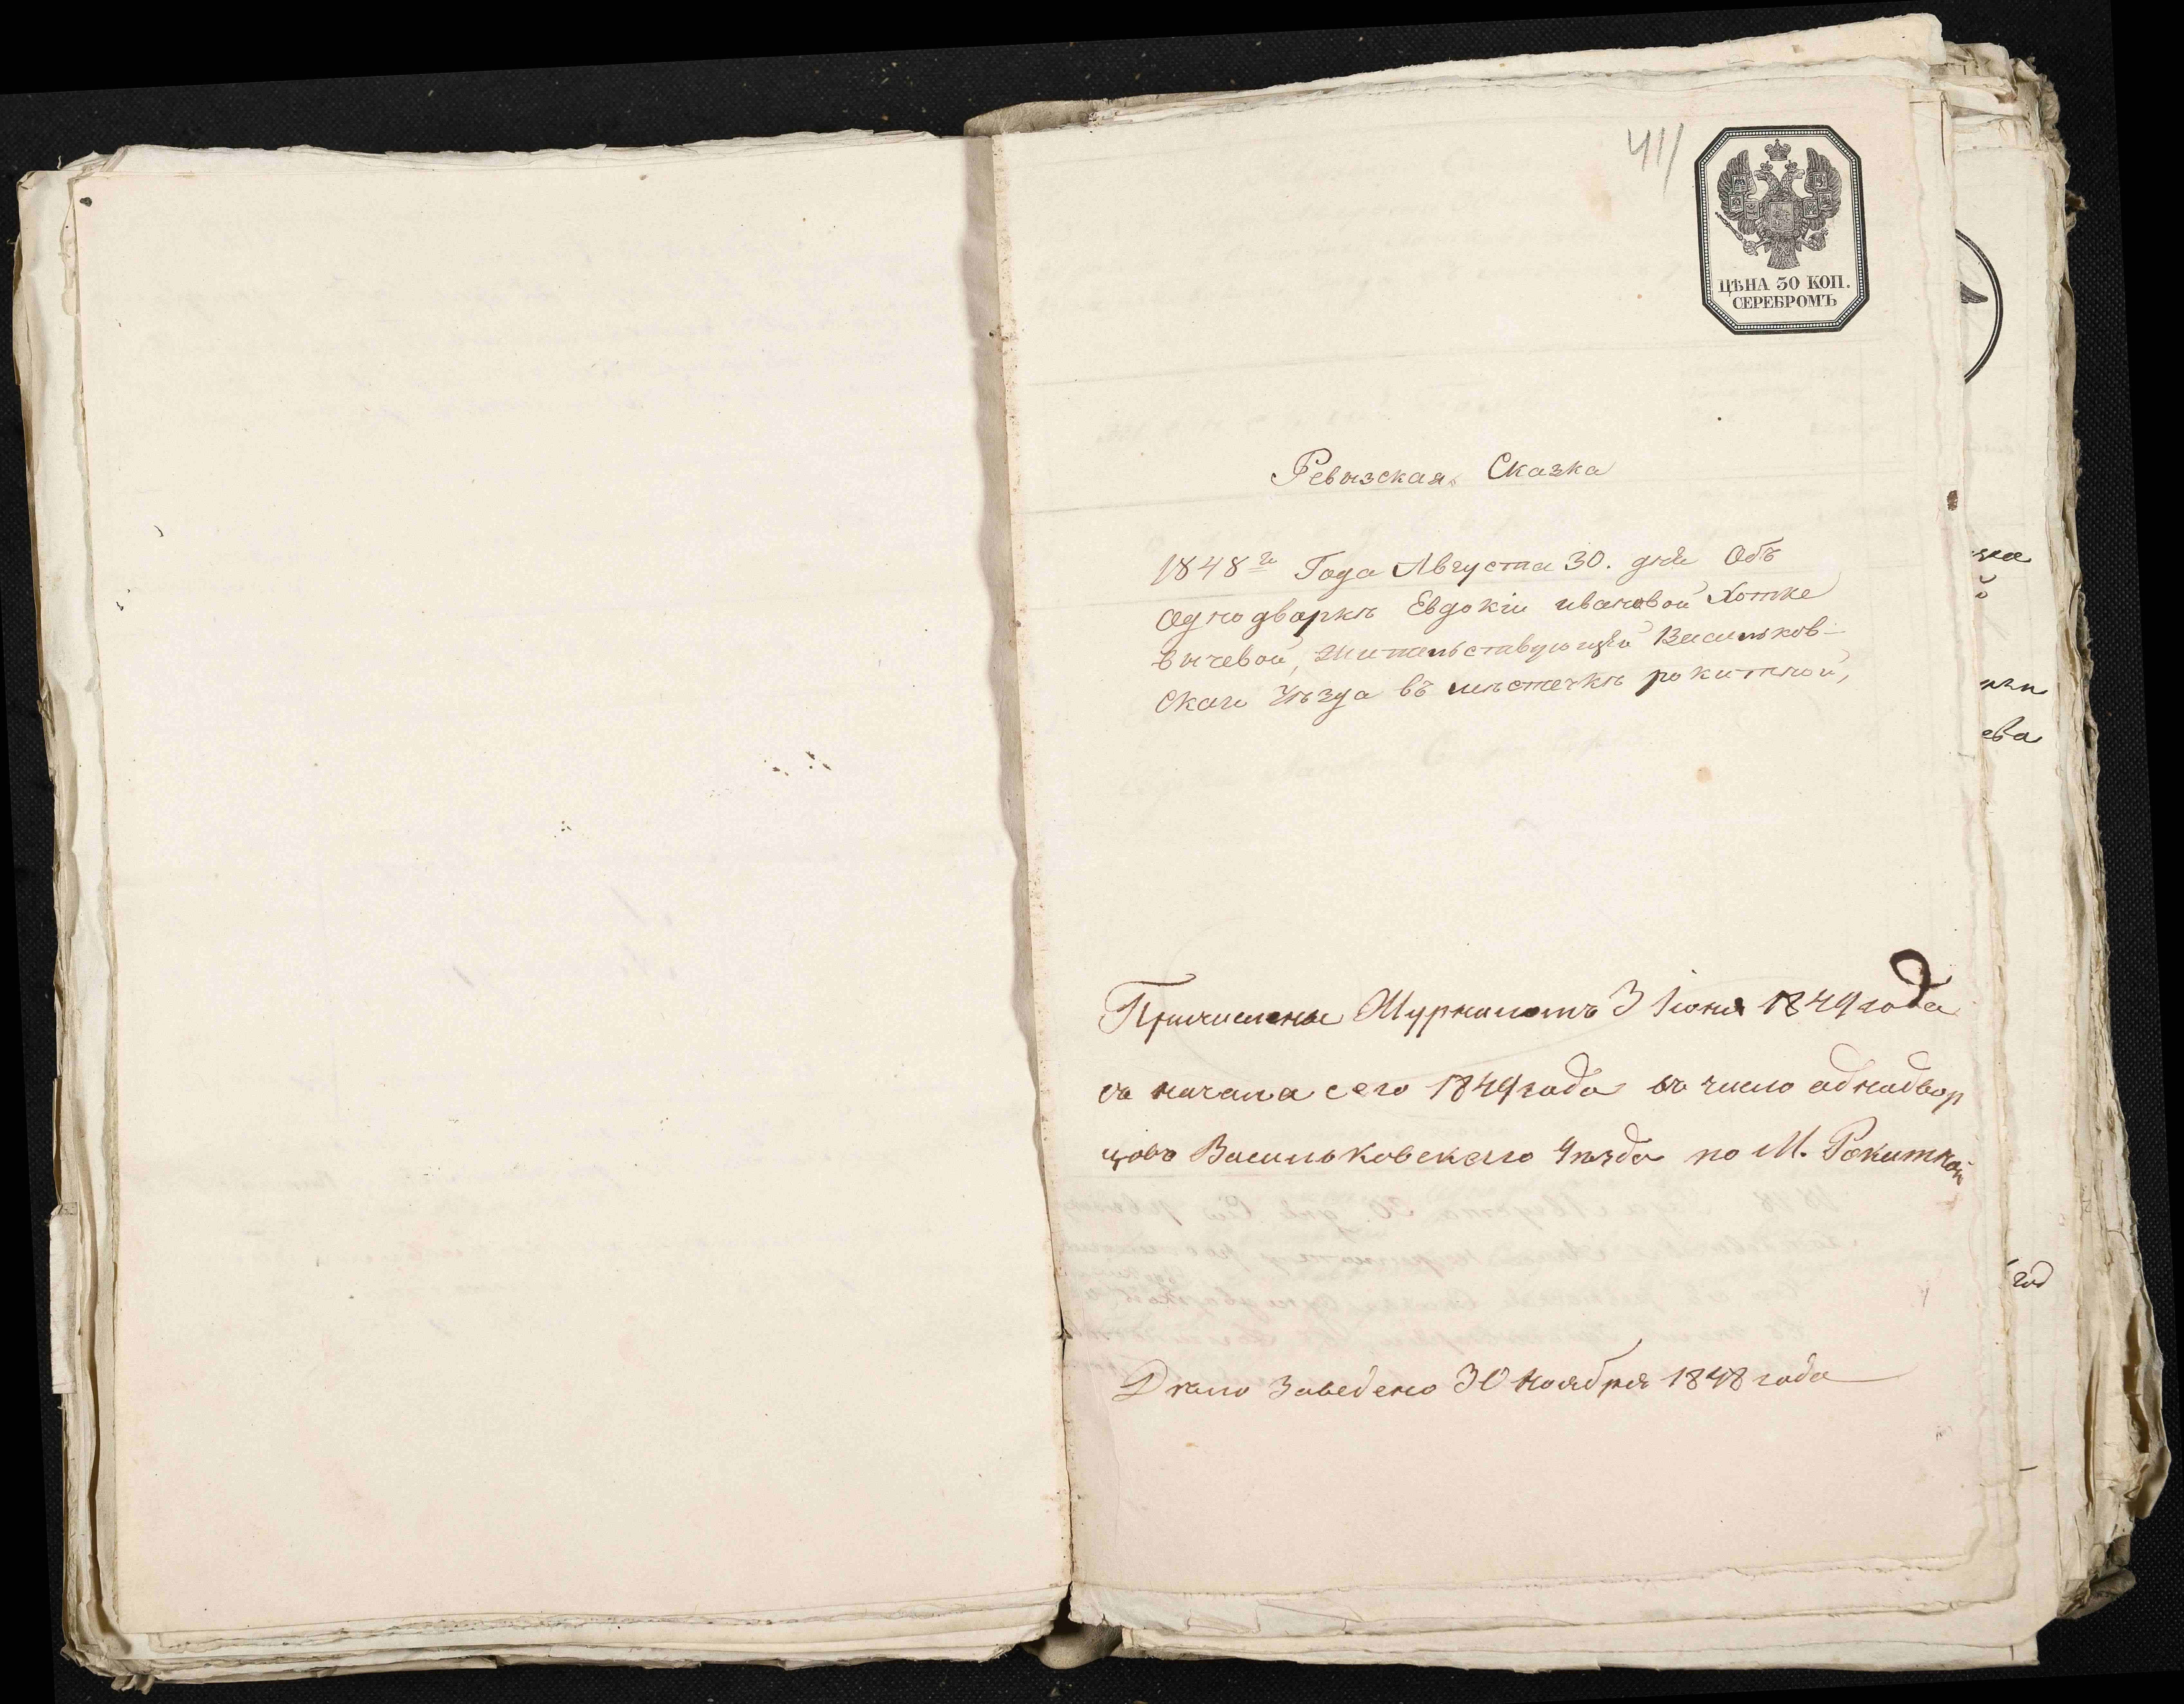 411
ЦѢНА 30 КОП.
СЕРЕБРОМЪ
Ревызская Сказка
1848го Года Августа 30. дня Объ
Однодваркѣ Евдокіи ивановой Хотке
вычевой, жительствующей Васильков-
скаго Уѣзда въ мѣстечкѣ рокитной,
Причислены Журналомъ 3 Іюня 1849 года
съ начала сего 1849 года въ число однодвор
цовъ Васильковскаго Уѣзда по М. Рокитной
Дѣло заведено 30 Ноября 1848 года